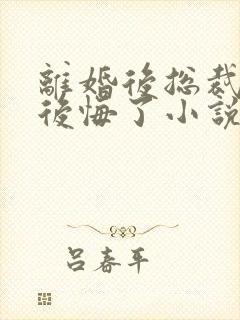 離婚後総裁
後悔了小説
呂春平